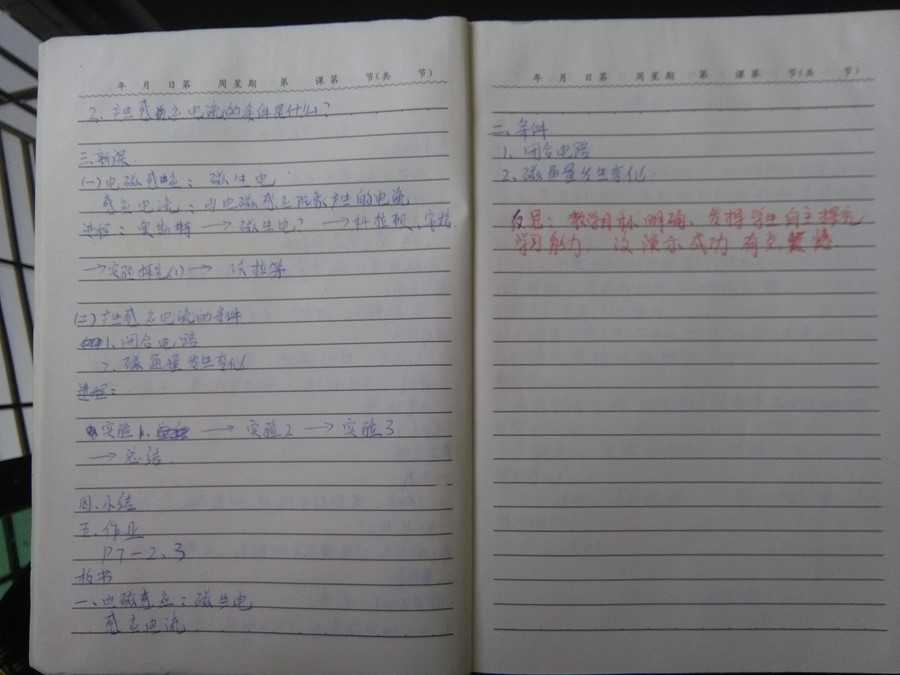 年 月 日第 周星期 第 课第 节(共 节)
2、产生感应电流的条件是什么?
三、新课
(一)电磁感应:磁生电
感应电流:由电磁感应现象产生的电流
进程:奥斯特→磁生电?→科拉顿、安培
→实验探究(1)→法拉第
(二)产生感应电流的条件
1、闭合电路
2、磁通量发生变化
进程:
实验1、→实验2→实验3
→总结
四、小结
五、作业
P7-2、3
板书
一、电磁感应:磁生电
感应电流
年 月 日第 周星期 第 课第 节(共 节)
二、条件
1、闭合电路
2、磁通量发生变化
反思:教学目标明确、发挥学生自主探究
学习能力 演示成功 有点